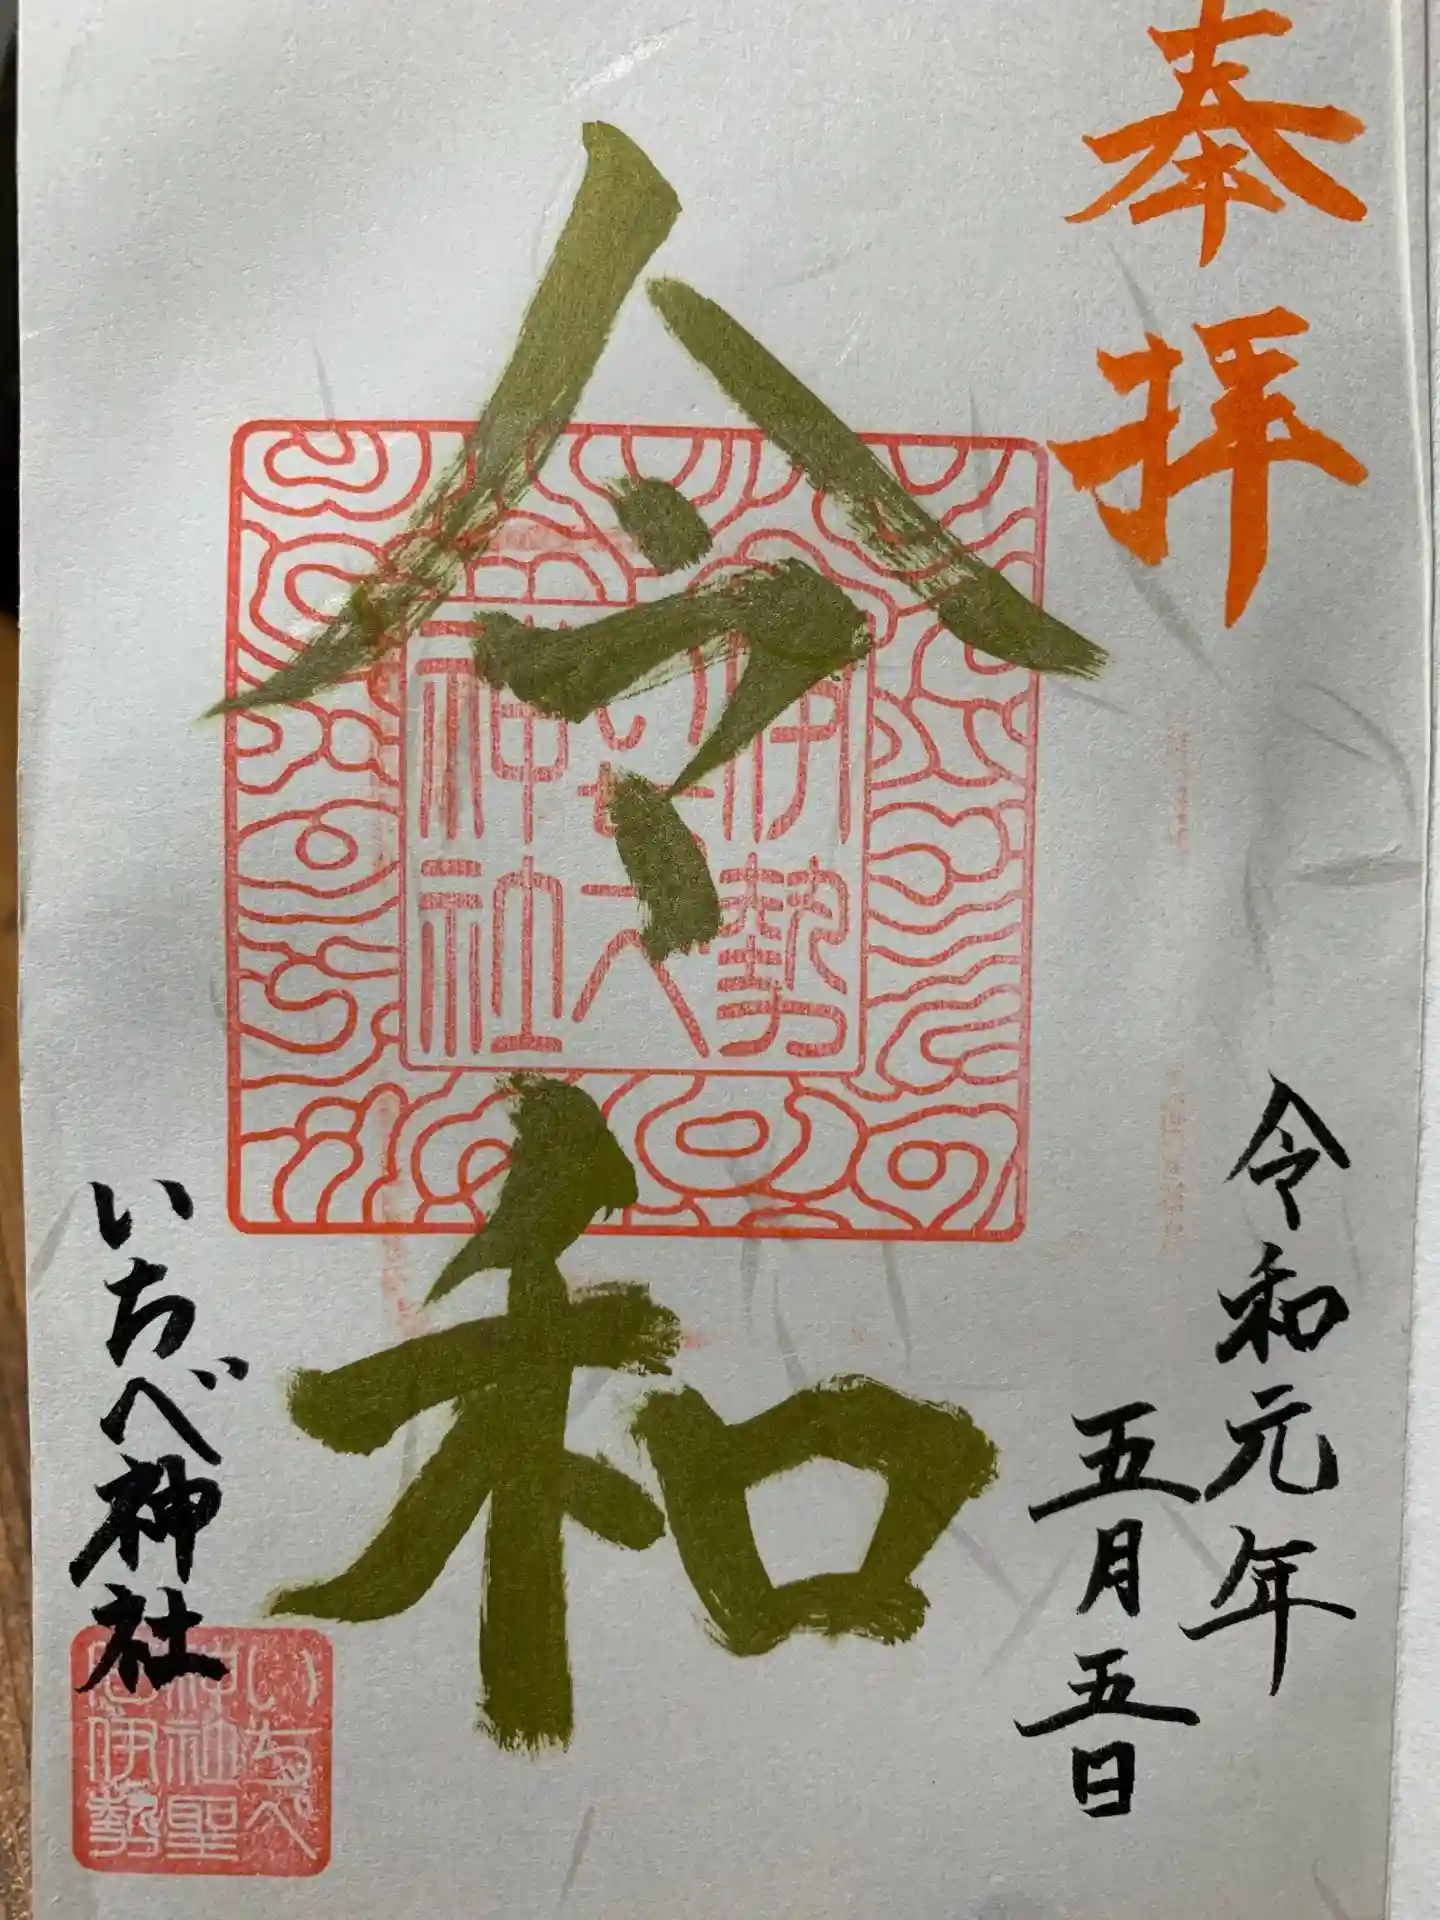 奉拝
令和元年
五月五日
令和
伊勢
神社
いちべ神社
いちべ
神社聖
伊勢